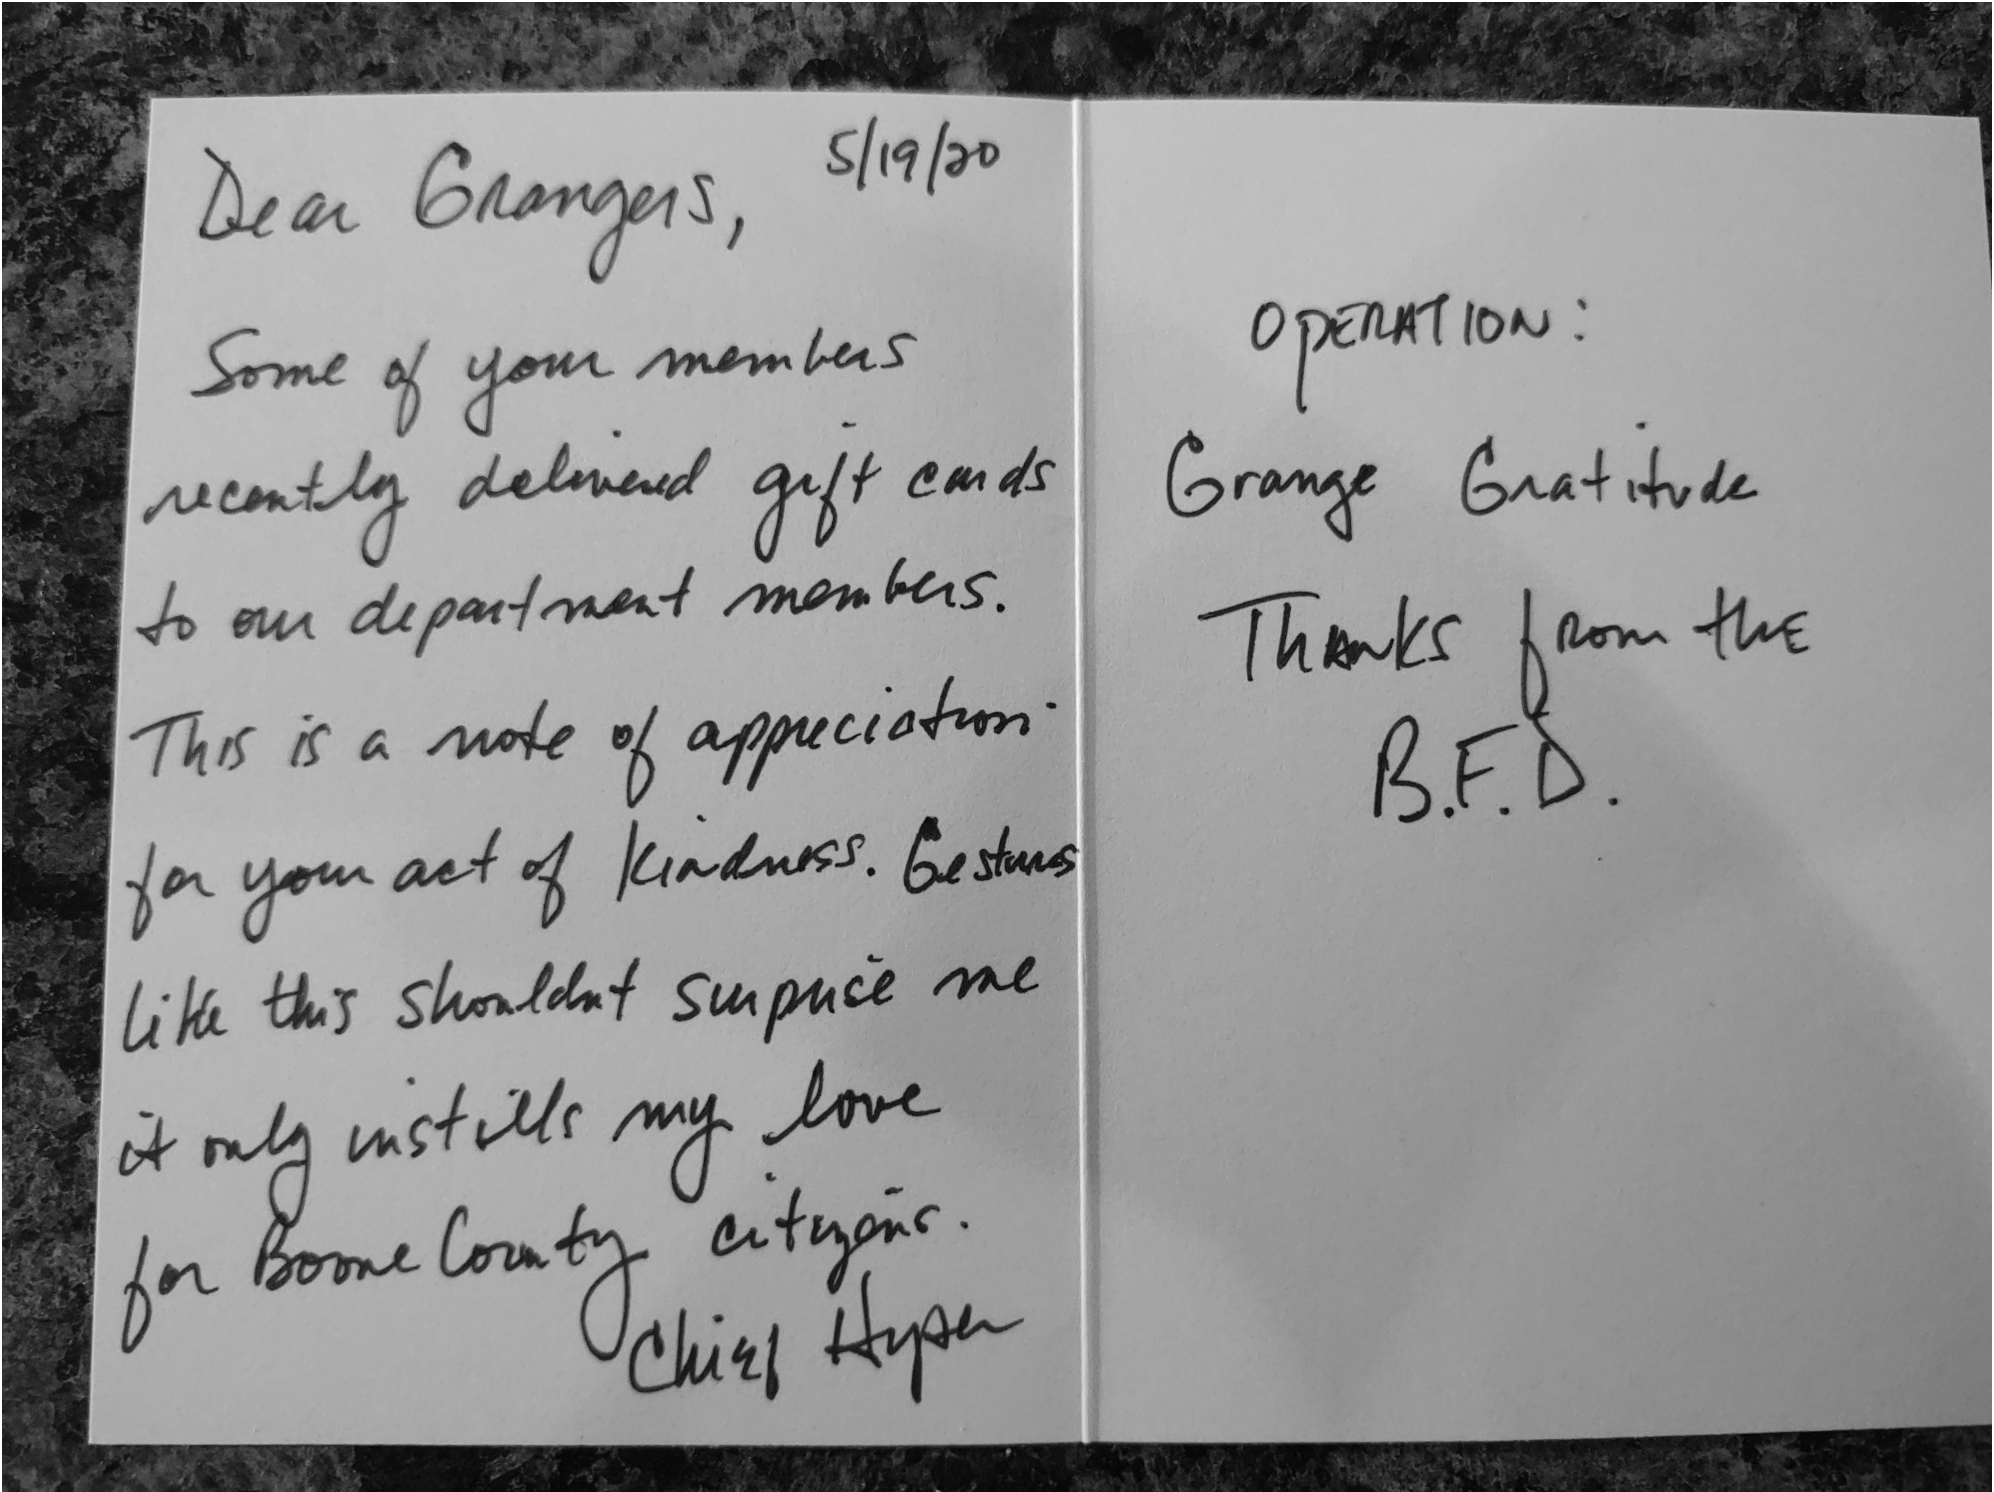 5/19/20
Dear Grangers,
Some of your members
recently delivered gift cards
to our department members.
This is a note of appreciation
for your act of kindness. Gestures
like this shouldnt surprise me
it only instills my love
for Boone County citizens.
Chief Hyper
OPERATION:
Grange Gratitude
Thanks from the
B.F.D.